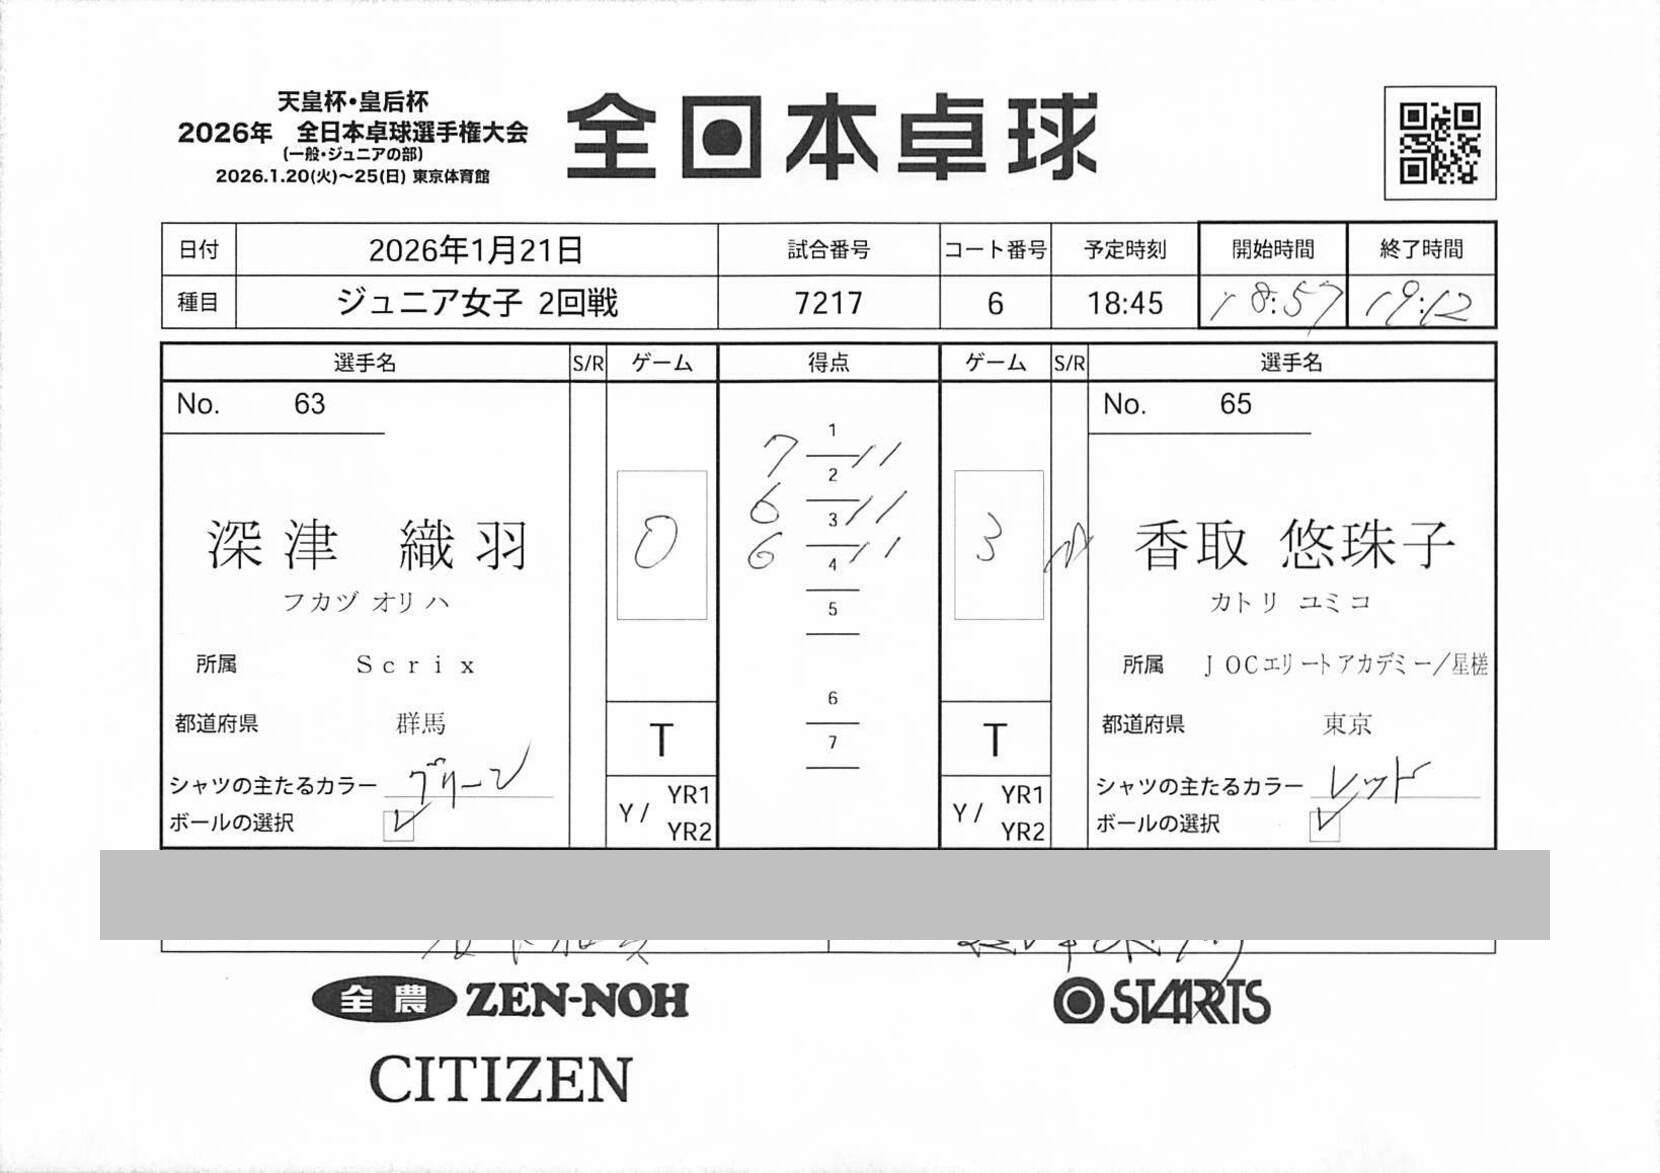 天皇杯・皇后杯
2026年 全日本卓球選手権大会
(一般・ジュニアの部)
2026.1.20(火)～25(日) 東京体育館
全日本卓球
日付 2026年1月21日 試合番号 コート番号 予定時刻 開始時間 終了時間
種目 ジュニア女子 2回戦 7217 6 18:45 18:57 19:12
選手名 S/R ゲーム 得点 ゲーム S/R 選手名
No. 63 No. 65
1
7 11
2
6 11
3
6 11
4
5
6
7
0 3
深津 織羽 香取 悠珠子
フカヅ オリハ カトリ ユミコ
所属 Scrix 所属 JOCエリートアカデミー/星槎
都道府県 群馬 T T 都道府県 東京
シャツの主たるカラー グリーン Y / YR1 Y / YR1 シャツの主たるカラー レッド
ボールの選択 ✓ YR2 YR2 ボールの選択 ✓
全農 ZEN-NOH STARTS
CITIZEN